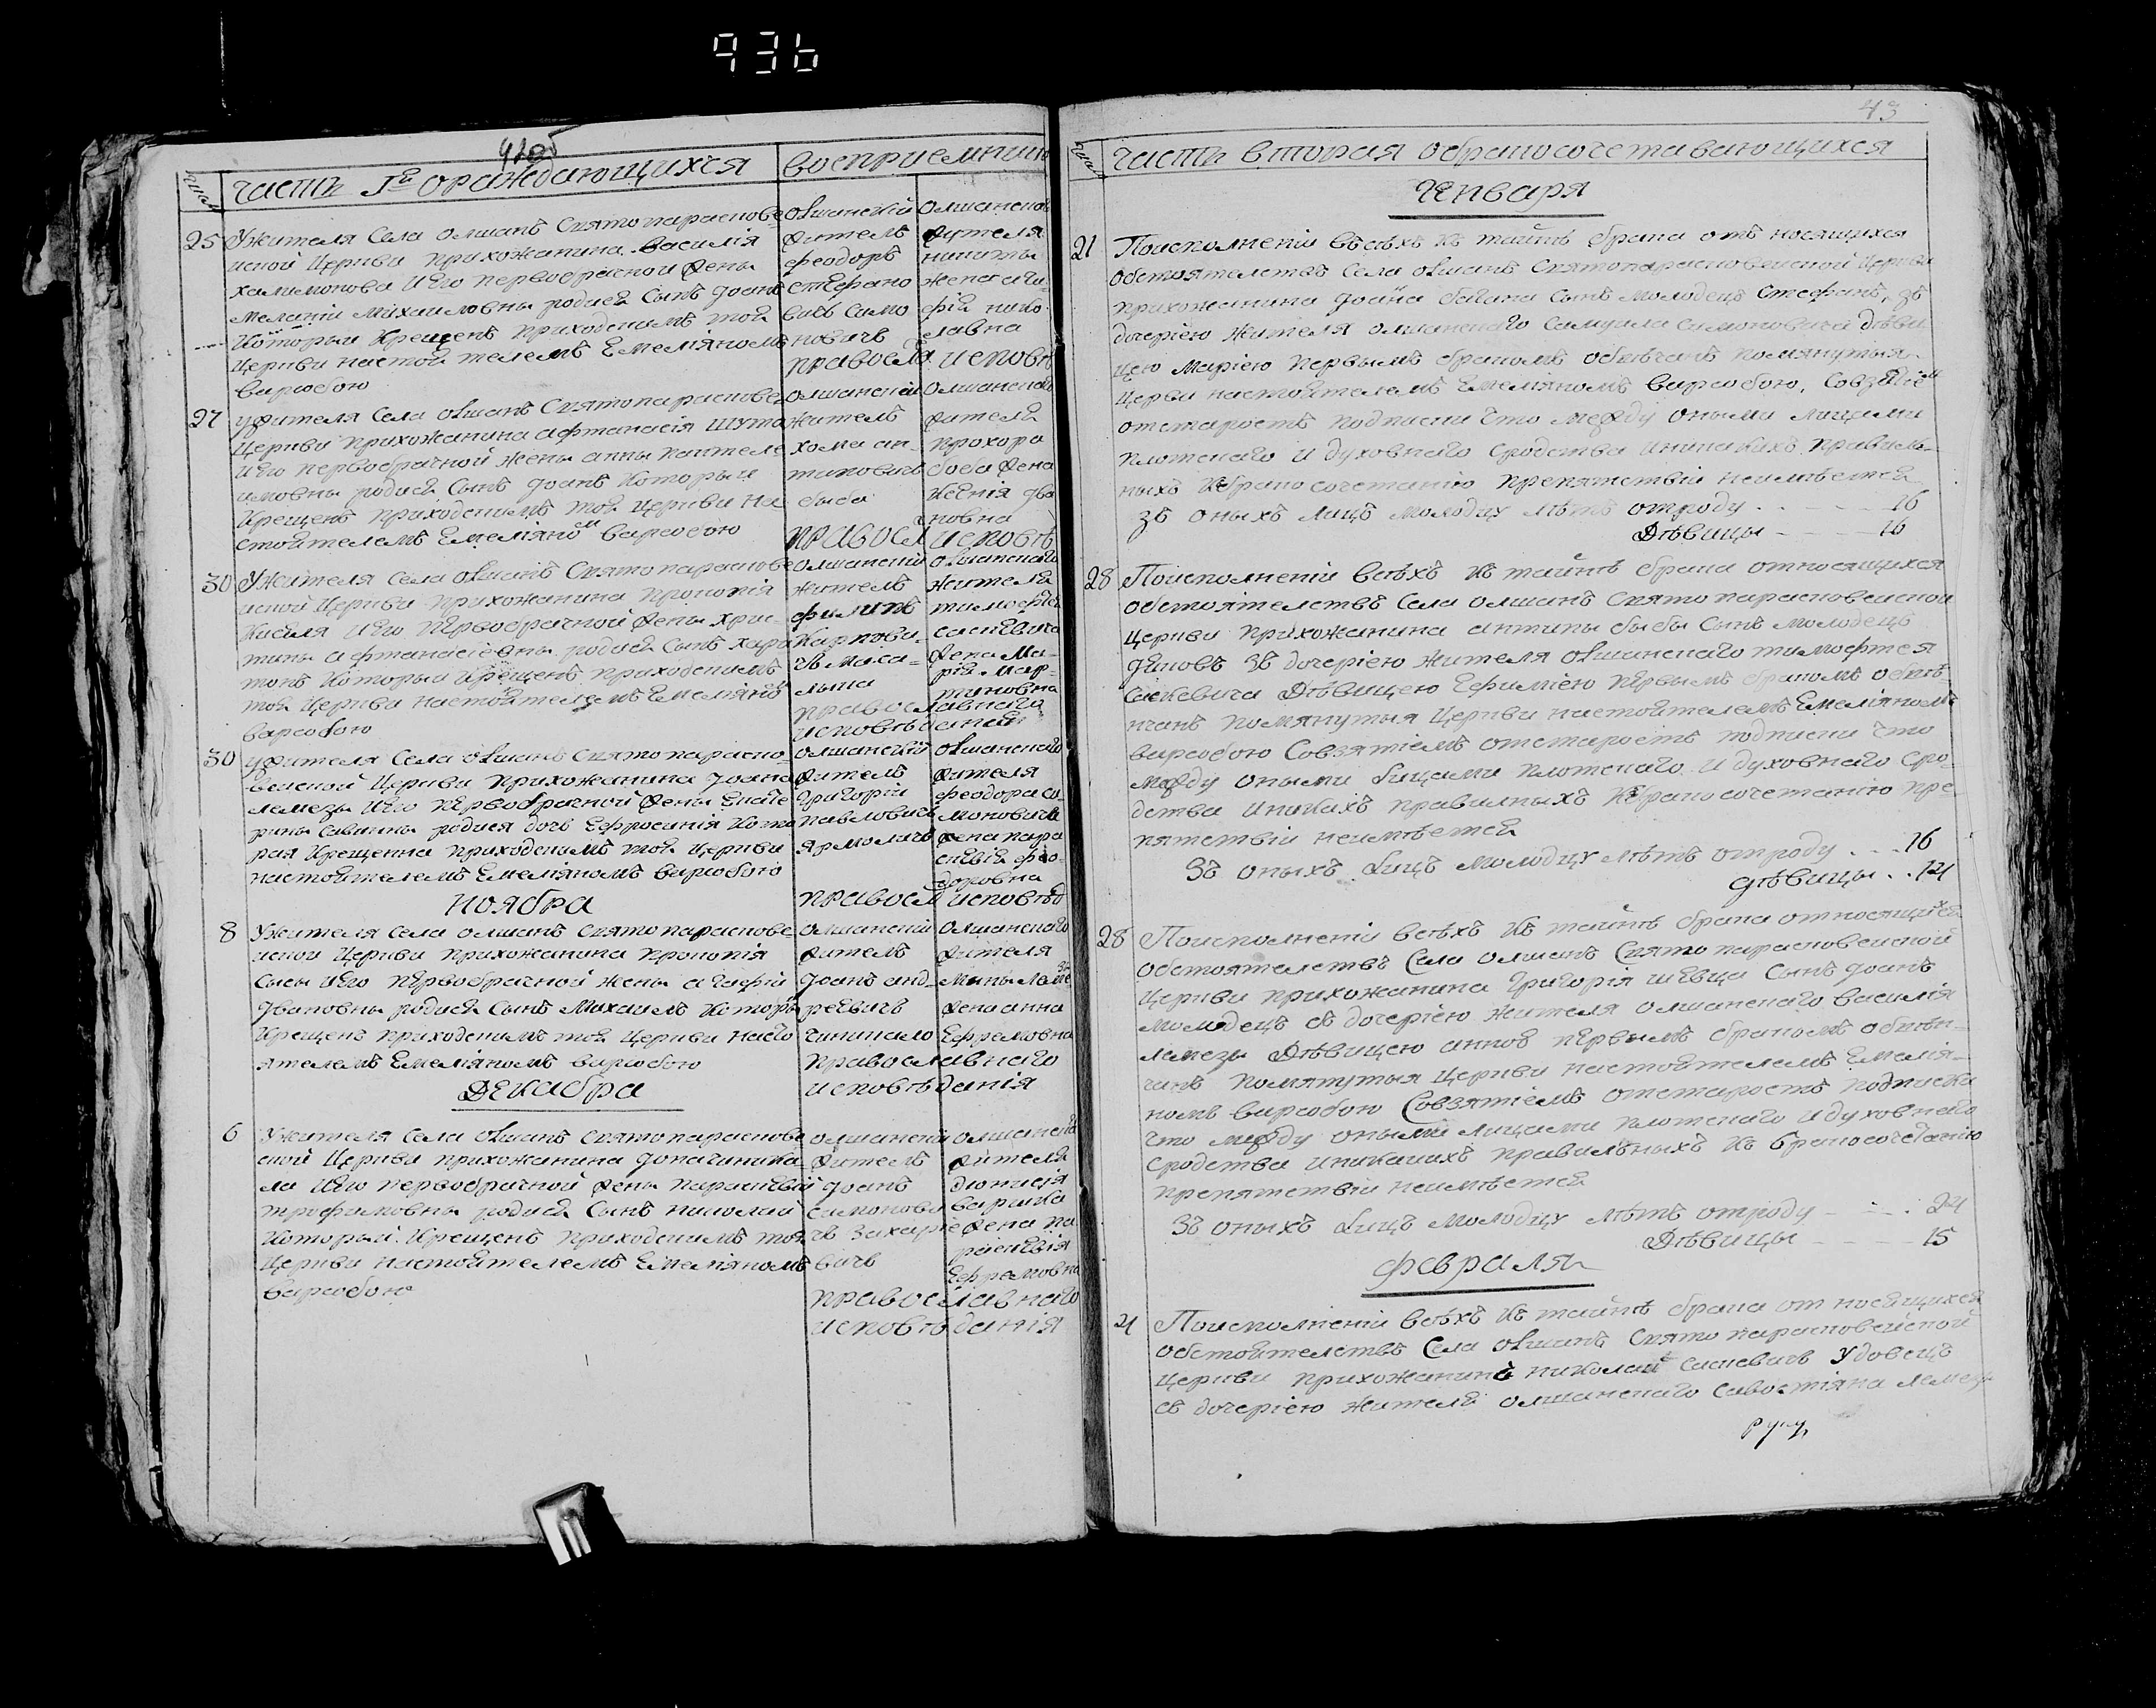 936
43
42об
число
часть I‑я ораждающихся
восприемники
25
Ужителя Села олшанъ Святопараскове-
иской Церкви прихожанина василія
халимонова и его первобрачной жены
меланіи михаиловны родися сынъ Іоанъ
который крещенъ приходскимъ той
Церкви настоятелемъ Емеляномъ
варивбою
олшанскій
житель
феодоръ
стефано
вичъ само
новичъ
олшанского
жителя
никиты
жена ага-
фія нико
лавна
православ. исповѣ
27
ужителя Села олшанъ Святопараскове
Церкви прихожанина афтанасія
и его первобрачной жены анны пантеле
имовны родися Сынъ Іоанъ который
крещенъ приходскимъ той Церкви на
стоятелемъ Емеляномъ варивбою
олшанскій
житель
хома ан-
типовичъ
быба
олшанского
жителя
прохора
боба жена
Івановна
правосл исповѣ
30
Ужителя Села олшанъ Святопараскове
иской Церкви прихожанина прокопія
киселя и его первобрачной жены хрис-
тины афтанасіевны родися сынъ хари
тонъ который крещенъ приходскимъ
той Церкви настоятелемъ Емеляномъ
варивбою
олшанскій
житель
филипъ
карпови-
чъ маса-
лыка
олшанского
жителя
тимофея
саскевича
жена Ма-
рія Мар-
тиновна
православнаго
исповѣданія
30
ужителя Села олшанъ Святопараско-
веиской Церкви прихожанина Іоана
лемезы и его первобрачной жены Екате
рины Савишны родися дочь Ефросинія кото
рая крещенна приходскимъ той Церкви
настоятелемъ Емеліяномъ варивбою
олшанскій
житель
григорій
павловичъ
ярмоличъ
олшанского
жителя
феодора са-
моновича
жена пара
скевія фео-
доровна
ноября
правосл исповѣд
8
Ужителя Села олшанъ Святопараскове-
иской Церкви прихожанина прокопія
Сысы и его первобрачной жены агафіи
Івановны родися Сынъ Михаилъ которы
крещенъ приходскимъ той Церкви насто
ятелемъ Емеліяномъ варивбою
олшанскій
житель
Іоанъ анд-
реевичъ
чикикало
олшанского
жителя
мины леме
зы
жена анна
Ефремовна
православнаго
исповѣданія
Декабра
6
Ужителя Села олшанъ Святопараскове
ской Церкви прихожанина Іоана чикика-
ла и его первобрачной жены параскевіи
трофимовны родися Сынъ николаи
который крещенъ приходскимъ той
Церкви настоятелемъ Емеліяномъ
варивбою
олшанскій
житель
Іоанъ
самонови
чъ захаріе
вичъ
олшанского
жителя
діонисія
варивка
жена па
раскевія
Ефремовна
православнаго
исповѣданія
число
часть вторая обракосочетавающихся
Генваря
21
Поисполненіи всѣхъ къ тайнѣ брака отъ носящихся
обстоятелствъ Села олшанъ Святопарасковеиской Церкви
прихожанина Іоана сынъ молодецъ Стефанъ, зъ
дочеріею жителя олшанского Самуила самоновича дѣви
цею Маріею первымъ бракомъ обвѣнчанъ помянутыя
Церкви настоятелемъ Емеліяномъ варивбою, Совзятіемъ
отстаростъ подписки что между оными лицами
плотского и духовнаго сродства иникакихъ правиль-
ныхъ кбракосочетанію препятствій неимѣется
зъ оныхъ лицъ молодцу лѣтъ отроду . . 16
Дѣвицы - - - 16
28
Поисполненіи всѣхъ къ тайнѣ брака относящихся
обстоятелствъ Села олшанъ Свято парасковеиской
Церкви прихожанина антипы быбы Сынъ молодецъ
Іяковъ зъ дочеріею жителя олшанского тимофтея
саскевича Дѣвицею Ефиміею первымъ бракомъ обвѣ-
нчанъ помянутыя Церкви настоятелемъ Емеліяномъ
варивбою Совзятіемъ отстаростъ подписки что
между оными лицами плотского и духовнаго сро-
дства иникакихъ правилныхъ кбракосочетанію пре-
пятствій неимѣется
Зъ оныхъ лицъ молодцу лѣтъ отроду . . . 16
дѣвицы . . 14
28
Поисполненіи всѣхъ къ тайнѣ брака относящихся
обстоятелствъ Села олшанъ Свято парасковеиской
Церкви прихожанина григорія шевца Сынъ Іоанъ
молодецъ съ дочеріею жителя олшанского василія
лемезы Дѣвицею анною первымъ бракомъ обвѣн-
чанъ помянутыя Церкви настоятелемъ Емелія-
номъ варивбою Совзятіемъ отстаростъ подписки
что между оными лицами плотского и духовнаго
сродства иникакихъ правильныхъ къ бракосочетанію
препятствій неимѣется
Зъ оныхъ лицъ молодцу лѣтъ отроду - - . 24
Дѣвицы - - - - 15
февраля
4
Поисполненіи всѣхъ къ тайнѣ брака от носящихся
обстоятелствъ Села олшанъ Свято парасковеиской
Церкви прихожанинъ николаи саскевичъ удовецъ
съ дочеріею жителя олшанского савостіяна лемезы